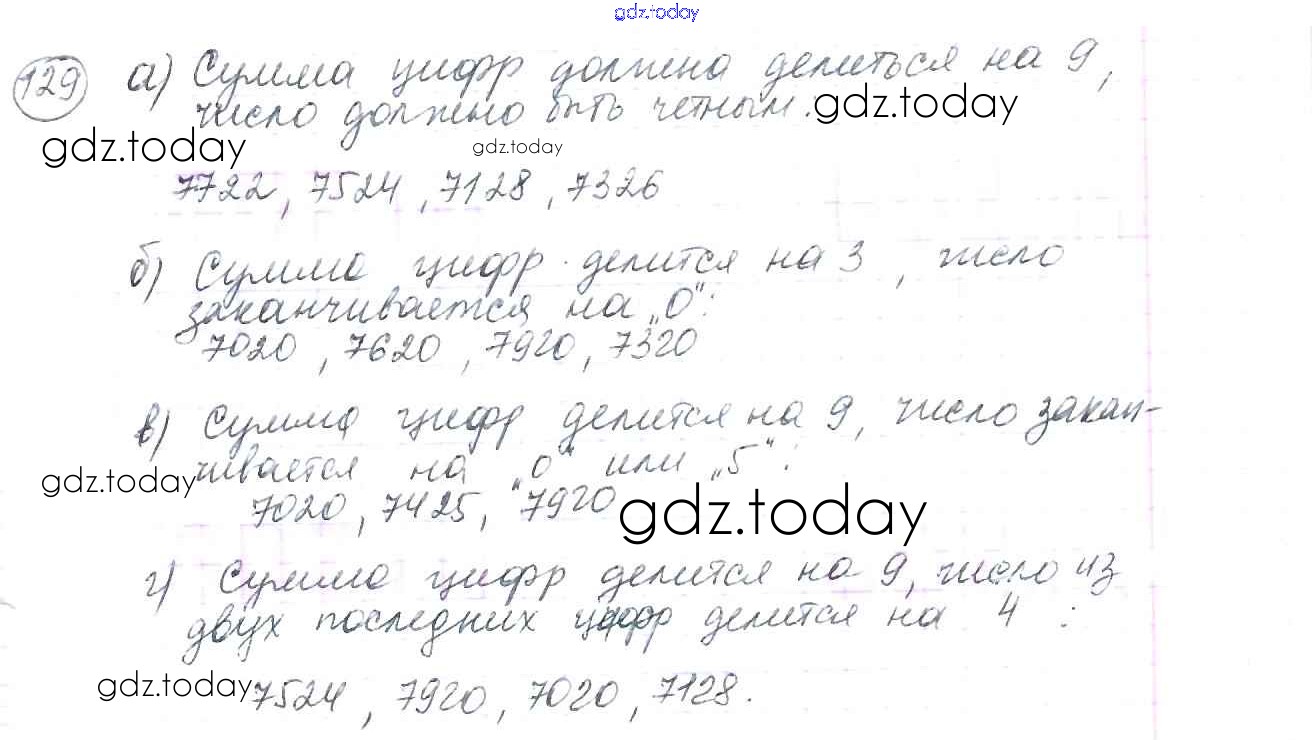 gdz.today
129 а) Сумма цифр должна делиться на 9,
число должно быть четным. gdz.today
gdz.today gdz.today
7722, 7524, 7128, 7326
б) Сумма цифр делится на 3, число
заканчивается на „0":
7020, 7620, 7920, 7320
в) Сумма цифр делится на 9, число закан-
чивается на „0" или „5":
gdz.today
7020, 7425, 7920 gdz.today
г) Сумма цифр делится на 9, число из
двух последних цифр делится на 4 :
gdz.today 7524, 7920, 7020, 7128.